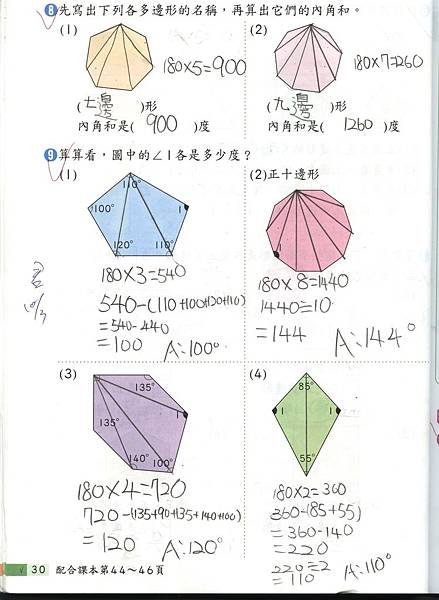 8 先寫出下列各多邊形的名稱，再算出它們的內角和。
(1)
180×5=900
(七邊)形
內角和是(900)度
(2)
180×7=1260
(九邊)形
內角和是(1260)度
9 算算看，圖中的∠1各是多少度？
(1)
110°
100°
1
120°
110°
180×3=540
540-(110+100+120+110)
=540-440
=100
A:100°
(2)正十邊形
1
180×8=1440
1440÷10
=144
A:144°
(3)
135°
135°
1
140°
100°
180×4=720
720-(135+90+135+140+100)
=120
A:120°
(4)
85°
1
1
55°
180×2=360
360-(85+55)
=360-140
=220
220÷2
=110
A:110°
30 配合課本第44～46頁